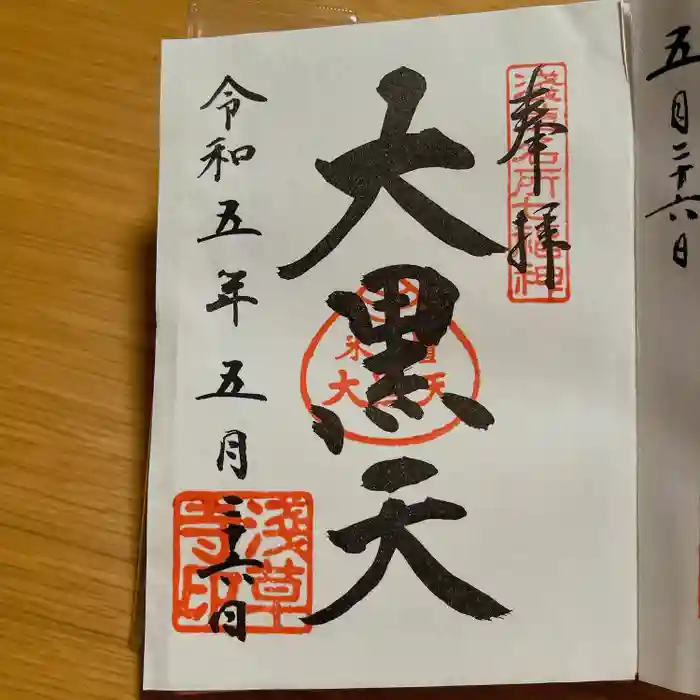 五月二十六日
奉拝
浅草名所七福神
大黒天
令和五年五月二十六日
浅草寺印